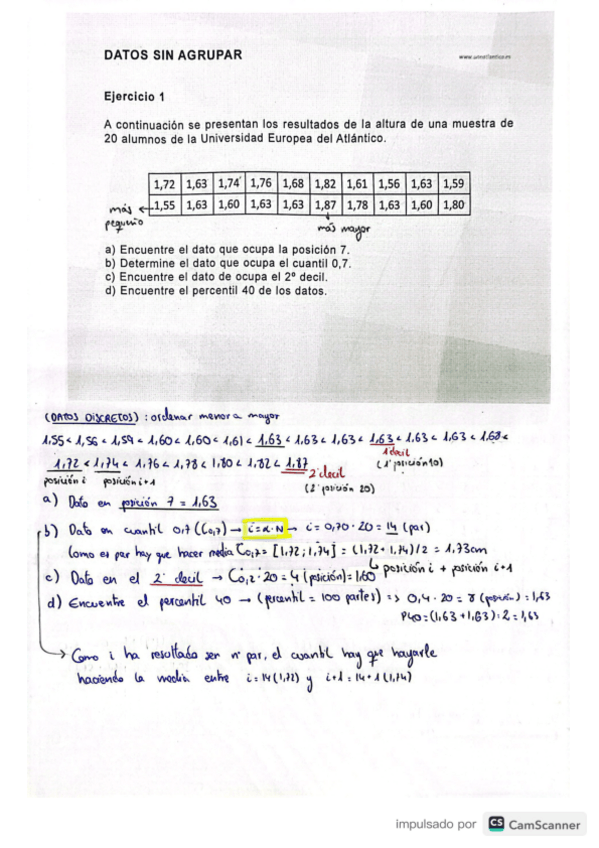 DATOS SIN AGRUPAR
www.uneatlantico.es
Ejercicio 1
A continuación se presentan los resultados de la altura de una muestra de
20 alumnos de la Universidad Europea del Atlántico.
1,72 1,63 1,74 1,76 1,68 1,82 1,61 1,56 1,63 1,59
más ← 1,55 1,63 1,60 1,63 1,63 1,87 1,78 1,63 1,60 1,80
pequeño
más mayor
a) Encuentre el dato que ocupa la posición 7.
b) Determine el dato que ocupa el cuantil 0,7.
c) Encuentre el dato de ocupa el 2º decil.
d) Encuentre el percentil 40 de los datos.
(DATOS DISCRETOS) : ordenar menor a mayor
1,55 < 1,56 < 1,59 < 1,60 < 1,60 < 1,61 < 1,63 < 1,63 < 1,63 < 1,63 < 1,63 < 1,63 < 1,68 <
1 decil
(1ª posición 10)
1,72 < 1,74 < 1,76 < 1,78 < 1,80 < 1,82 < 1,87
2 decil
posición i posición i+1
(2ª posición 20)
a) Dato en posición 7 = 1,63
b) Dato en cuantil 0,7 (C0,7) → i=α·N → i = 0,70 · 20 = 14 (par)
Como es par hay que hacer media C0,7 = [1,72 ; 1,74] = (1,72 + 1,74)/2 = 1,73cm
↳ posición i + posición i+1
c) Dato en el 2º decil → C0,2 · 20 = 4 (posición) = 1,60
d) Encuentre el percentil 40 → (percentil = 100 partes) => 0,4 · 20 = 8 (posición) = 1,63
P40 = (1,63 + 1,63) : 2 = 1,63
→ Como i ha resultado ser nº par, el cuantil hay que hayarle
haciendo la media entre i = 14 (1,72) y i+1 = 14+1 (1,74)
impulsado por CS CamScanner